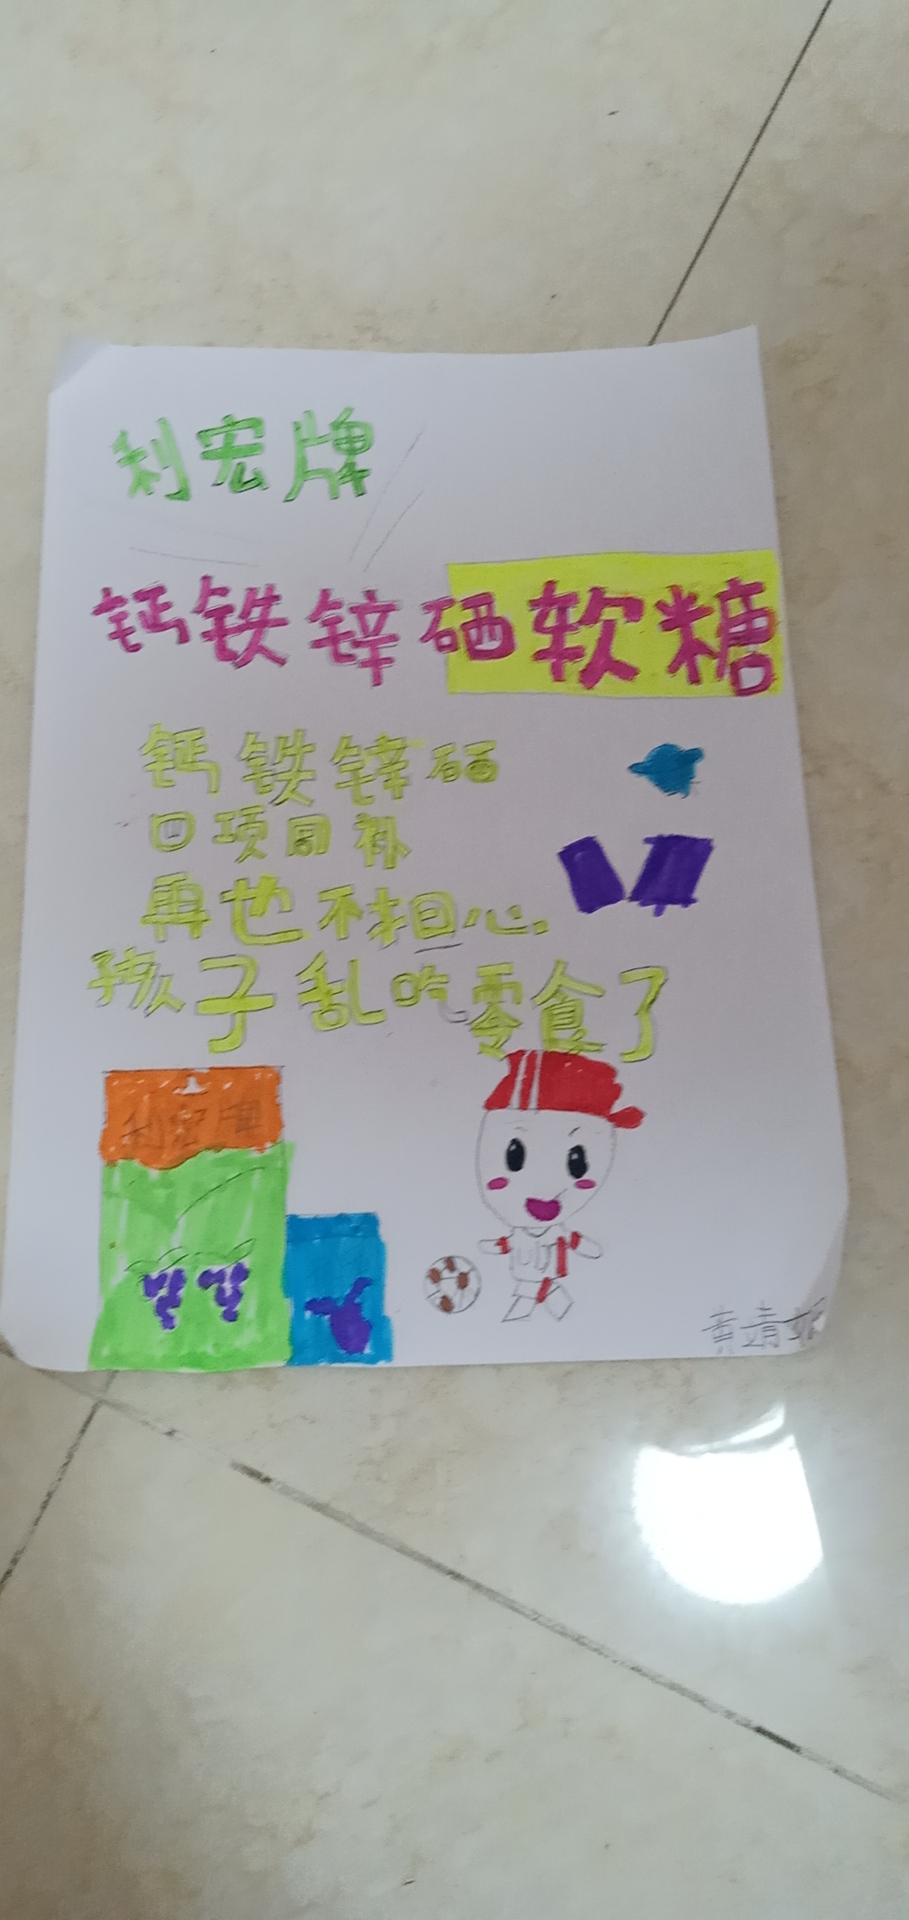 利宏牌
钙铁锌硒软糖
钙铁锌硒
口项同补
再也不担心
孩子乱吃零食了
利宏牌
黄靖妮